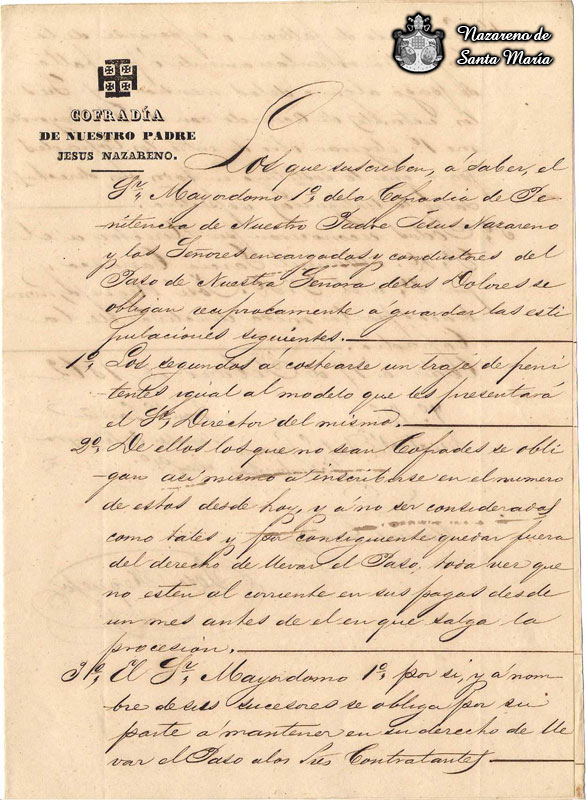 Nazareno de
Santa María
COFRADÍA
DE NUESTRO PADRE
JESUS NAZARENO.
Los que suscriben, á saber, el
Sr. Mayordomo 1º de la Cofradia de Pe-
nitencia de Nuestro Padre Jesus Nazareno
y los Señores encargados y conductores del
Paso de Nuestra Señora de los Dolores se
obligan reciprocamente á guardar las esti-
pulaciones siguientes.
1º, Los segundos á costearse un traje de peni-
tentes igual al modelo que les presentará
el Sr. Director del mismo.
2º, De ellos los que no sean Cofrades se obli-
gan asi mismo á inscribirse en el numero
de estos desde hoy, y á no ser considerados
como tales y por consiguiente quedar fuera
del derecho de llevar el Paso, toda vez que
no esten al corriente en sus pagas desde
un mes antes de el en que salga la
procesión.
3º, El Sr. Mayordomo 1º, por si, y á nom-
bre de sus sucesores se obliga por su
parte á mantener en su derecho de lle-
var el Paso a los Sres Contratantes